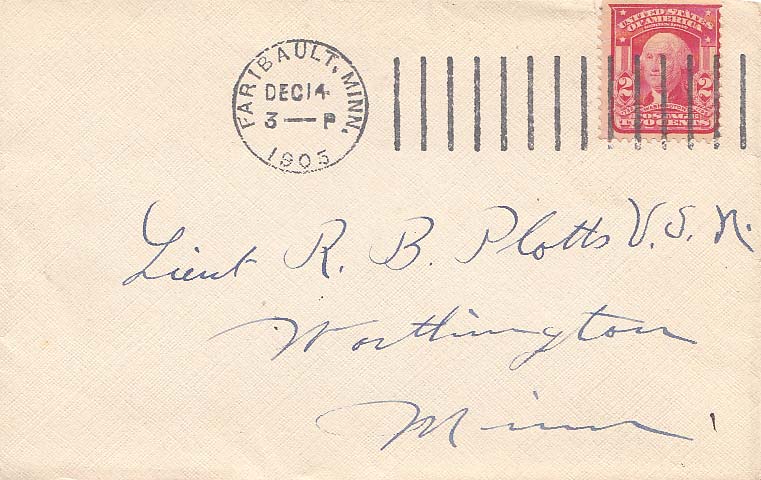 FARIBAULT, MINN.
DEC 14
3 — P
1903
UNITED STATES
OF AMERICA
2 2
WASHINGTON
POSTAGE
TWO CENTS
Lieut R. B. Plotts U.S.N.
Worthington
Minn